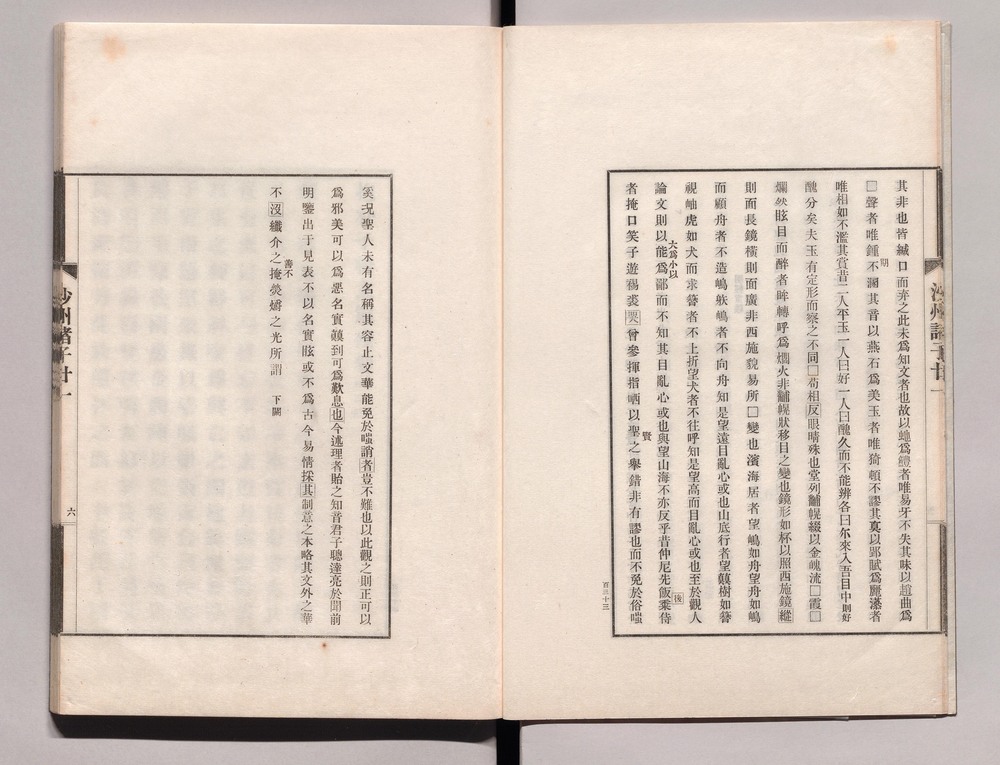 其非也皆緘口而弃之此未為知文者也故以蜒為鱧者唯易牙不失其味以趙曲為
□聲者唯鍾不瀾其音以燕石為美玉者唯猗頓不謬其真以郢賦為麗藻者
期
唯相如不濫其賞昔二人平玉一人曰好一人曰醜久而不能辨各曰尔來入吾目中則好
醜分矣夫玉有定形而察之不同□苟相反眼睛殊也堂列黼幌綴以金魄流□霞□
爛然眩目而醉者眸轉呼為爓火非黼幌狀移目之變也鏡形如杯以照西施鏡縱
則面長鏡橫則面廣非西施貌易所□變也濱海居者望嶋如舟望舟如嶋
而顧舟者不造嶋欰嶋者不向舟知是望遠目亂心或也山底行者望蕀樹如簪
視岫虎如犬而求簪者不上折望犬者不往呼知是望高而目亂心或也至於觀人
論文則以能為鄙而不知其目亂心或也與望山海不亦反乎昔仲尼先飯黍侍
大為小以
後
者掩口笑子遊裼裘罖曾參揮指哂以聖之舉錯非有謬也而不免於俗嗤
賢
百三十三
沙州諸子廿一
奚况聖人未有名稱其容止文華能免於嗤誚者豈不難也以此觀之則正可以
為邪美可以為惡名實顛到可為歎息也今述理者貽之知音君子聰達亮於聞前
明鑒出于見表不以名實眩或不為古今易情採其制意之本略其文外之華
不沒纖介之掩熒爝之光所謂 下闕
善不
沙州諸子廿一
六